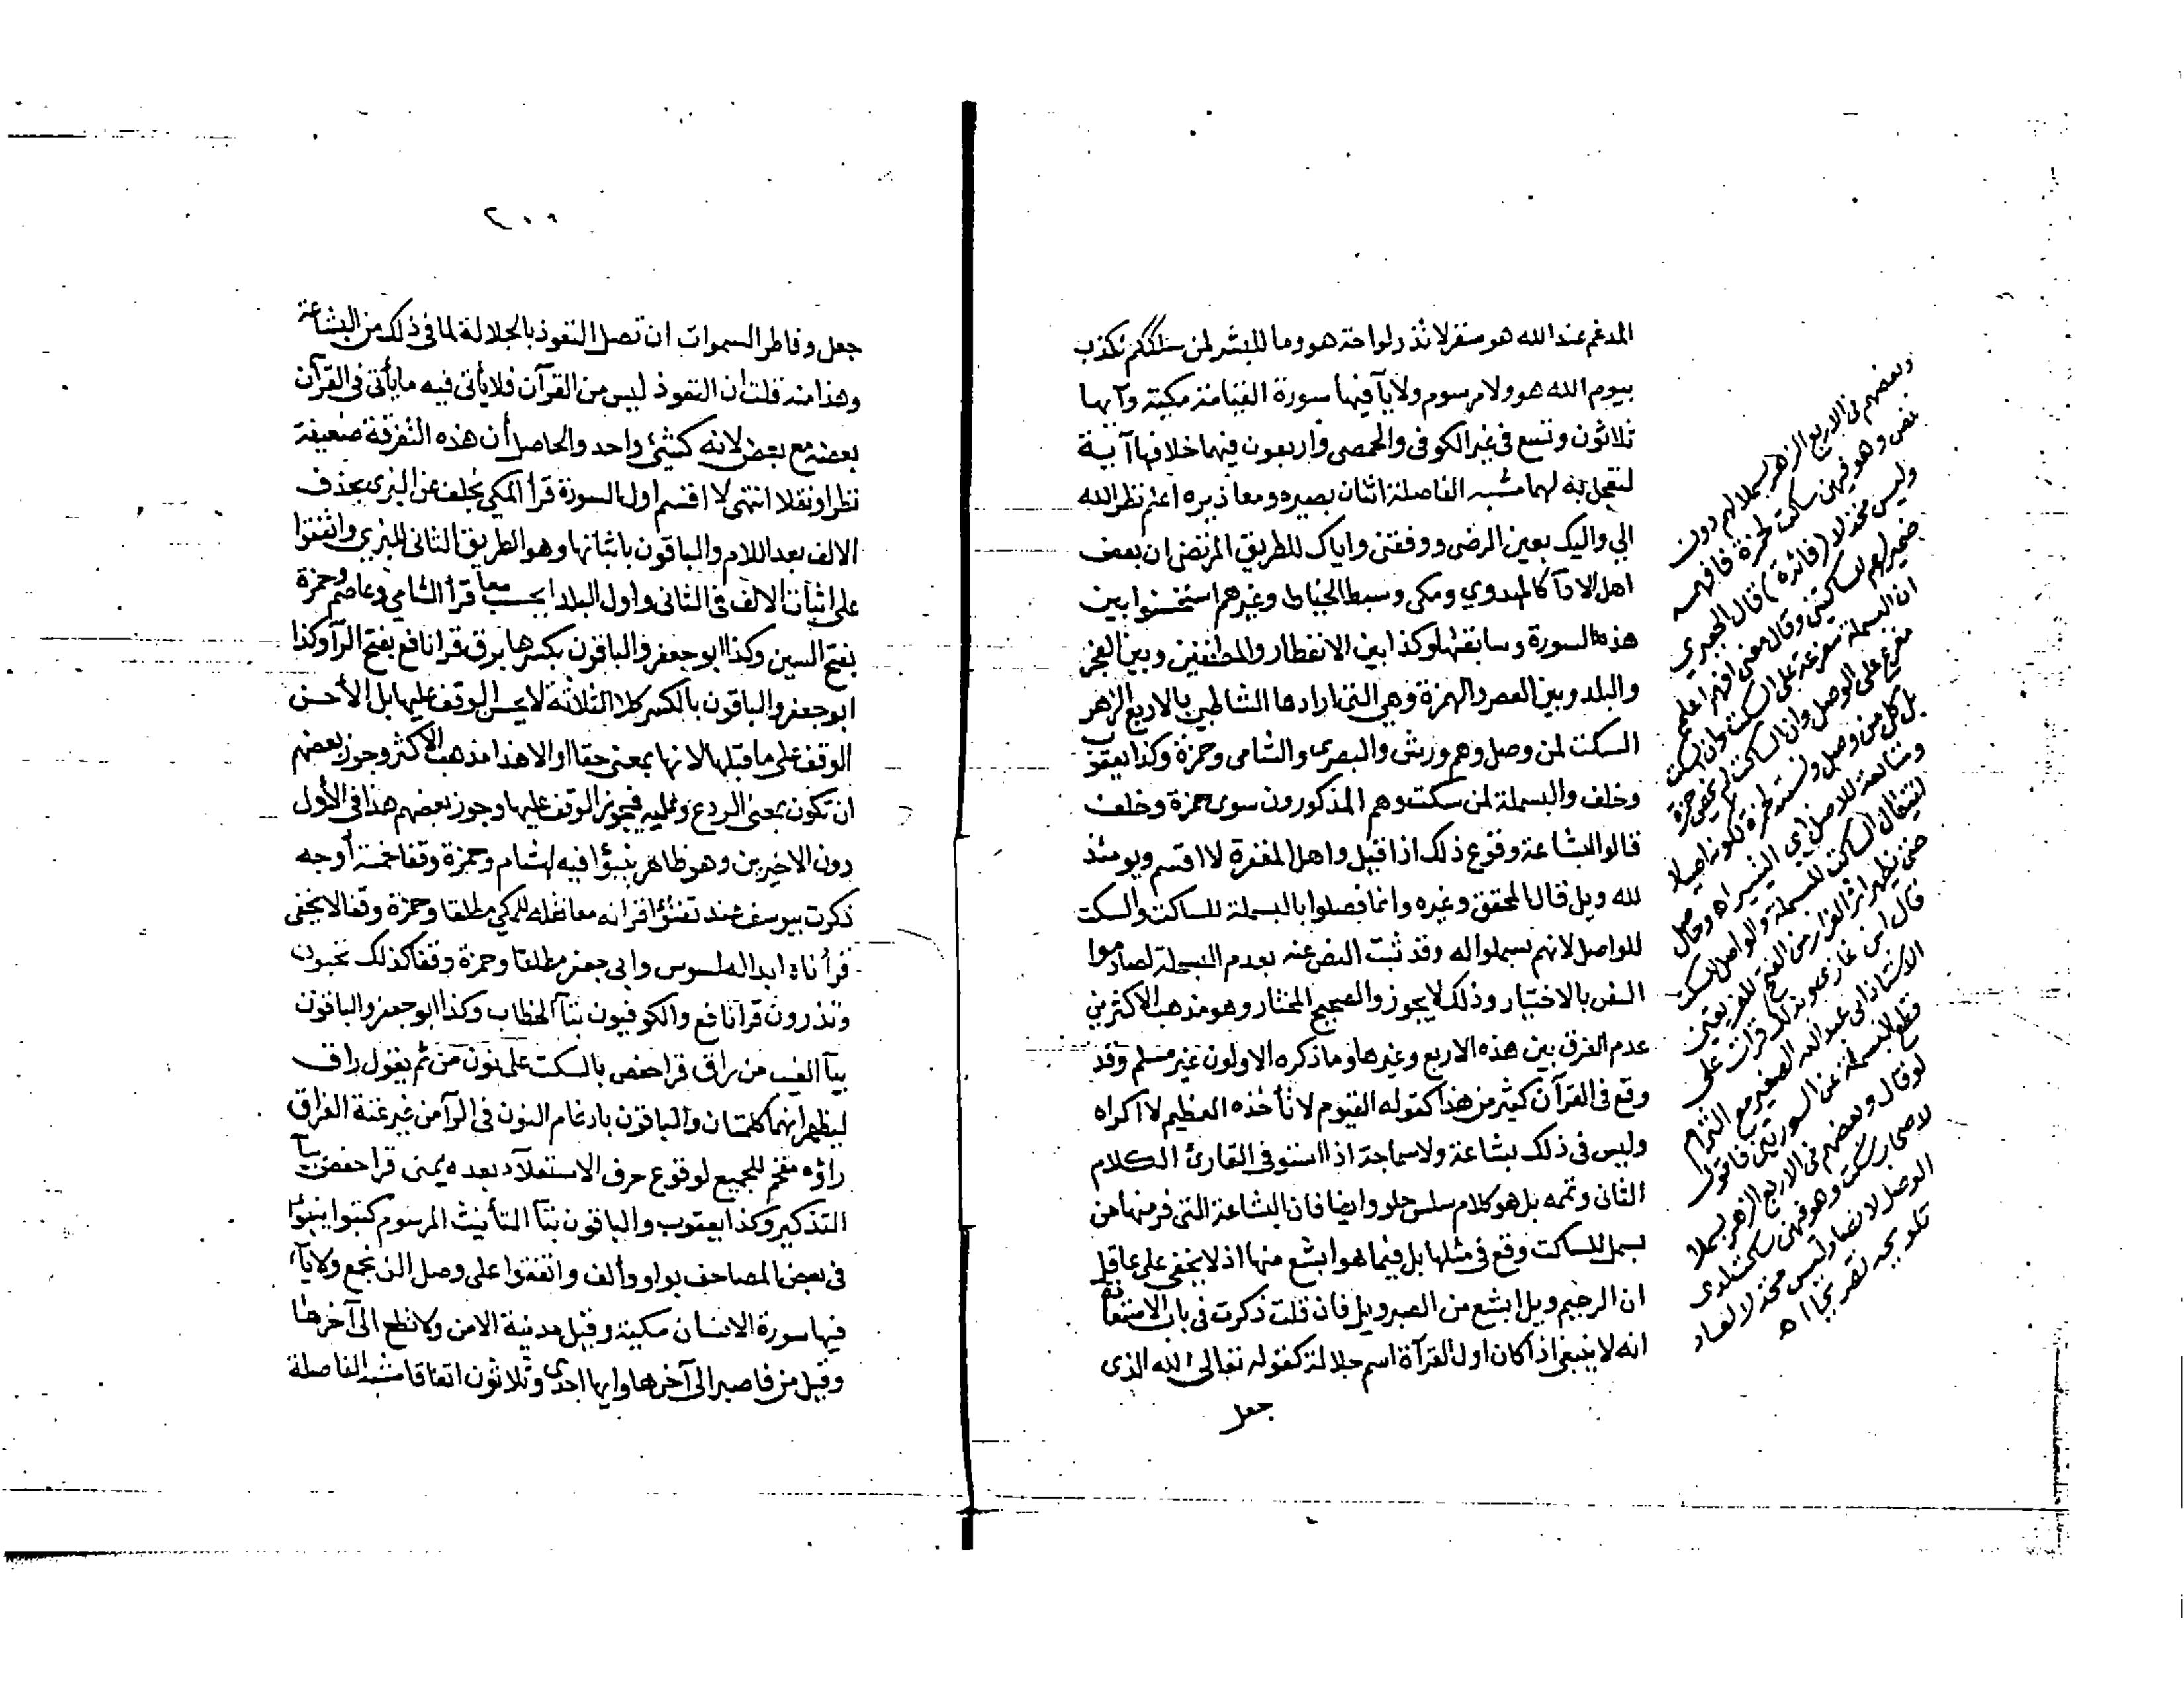 المدغم عند الله هو سقر لا تذر لواحة هو وما للبشر لمن سلككم نكذب
بيوم الله هو ولا مرسوم ولا يآ فيها سورة القيامة مكية وآيها
ثلاثون وتسع في غير الكوفى والحمصى واربعون فيهما خلافها آية
لتعجل به لهما مشبه الفاصلة اثنان بصيره ومعاذيره اعلم نظر الله
الي واليك بعين الرضى ووفقني واياك للطريق المرتضى ان بعض
اهل الادآ كالمهدوي ومكى وسبط الخياط وغيرهم استحسنوا بين
هذه السورة وسابقتها وكذا بين الانفطار والمطففين وبين الفجر
والبلد وبين العصر والهمزة وهي التى ارادها الشاطبي بالاربع الزهر
السكت لمن وصل وهم ورش والبصرى والشامى وحمزة وكذا يعقوب
وخلف والبسملة لمن سكت وهم المذكورون سوى حمزة وخلف
قالوا لبشاعة وقوع ذلك اذا قيل واهل المغفرة لا اقسم ويومئذ
لله ويل قال المحقق وغيره وانما فصلوا بالبسملة للساكت والسكت
للواصل لانهم لو بسملوا له وقد ثبت النص عنه بعدم البسملة لصادموا
النص بالاختيار وذلك لا يجوز والصحيح المختار وهو مذهب الاكثرين
عدم الفرق بين هذه الاربع وغيرها وما ذكره الاولون غير مسلم وقد
وقع فى القرآن كثير من هذا كقوله القيوم لا تأخذه العظيم لا اكراه
وليس فى ذلك بشاعة ولا سماجة اذا استوفى القارئ الكلام
الثانى وتممه بل هو كلام سلس حلو وايضا فان البشاعة التى فر منها من
بسمل للساكت وقع فى مثلها بل فيما هو ابشع منها اذ لا يخفى على عاقل
ان الرحيم ويل ابشع من الصبر ويل فان قلت ذكرت فى باب الاستعاذة
انه لا ينبغى اذا كان اول القرآة اسم جلالة كقوله تعالى الله الذى
جعل
وبعضهم فى الاربع الزهر بسملا لهم دون
نص وهو فيهن ساكت لحمزة فافهمه
وليس مخذلا (فائدة) قال الجعبري
ضمير لهم للساكتين وقال معنى افهم اعلم
ان البسملة مفرعة على السكت وان السكت
مفرع على الوصل وان الساكت لم يخص حمزة
بل كل من وصل
قال ابن غازى وبذلك قرأت على
الاستاذ ابى عبد الله الصغير مع التزام
قطع البسملة عن السورتين
لو قال وبعضهم فى الاربع الزهر بسملا
٢٠٨
جعل وفاطر السموات ان تصل التعوذ بالجلالة لما فى ذلك من البشاعة
وهذا منه قلت ان التعوذ ليس من القرآن فلا يأتى فيه ما يأتى فى القرآن
بعضه مع بعض لانه كشئ واحد والحاصل أن هذه التفرقة ضعيفة
نظرا ونقلا انتهى لا اقسم اول السورة قرأ المكي بخلف عن البزى بحذف
الالف بعد اللام والباقون باثباتها وهو الطريق الثانى للبزي واتفقوا
على اثبات الالف فى الثانى واول البلد ايحسب معا قرأ الشامي وعاصم وحمزة
بفتح السين وكذا ابو جعفر والباقون بكسرها برق قرا نافع بفتح الرآ وكذا
ابو جعفر والباقون بالكسر كلا الثلاثة لا يحسن الوقف عليها بل الأحسن
الوقف على ما قبلها لانها بمعنى حقا او الا هذا مذهب الاكثر وجوز بعضهم
ان تكون بمعنى الردع وعليه فيجوز الوقف عليها وجوز بعضهم هذا فى الأول
دون الاخيرين وهو ظاهر ينبؤا فيه لهشام وحمزة وقفا خمسة أوجه
ذكرت بيوسف عند تفتؤا قرانه معا نقله للمكي مطلقا وحمزة وقفا لا يخفى
قرأناه ابداله لسوس وابى جعفر مطلقا وحمزة وقفا كذلك تحبون
وتذرون قرا نافع والكوفيون بتآ الخطاب وكذا ابو جعفر والباقون
بيآ الغيب من راق قرا حفص بالسكت على نون من ثم يقول راق
ليظهر انهما كلمتان والباقون بادغام النون فى الرآ من غير غنة الفراق
راؤه مفخم للجميع لوقوع حرف الاستعلاء بعده يمنى قرا حفص بيآ
التذكير وكذا يعقوب والباقون بتآ التأنيث المرسوم كتبوا ينبؤا
فى بعض المصاحف بواو والف واتفقوا على وصل الن نجمع ولا يآء
فيها سورة الانسان مكية وقيل مدنية الا من ولا تطع الى آخرها
وقيل من فاصبر الى آخرها وايها احدى وثلاثون اتفاقا مشبه الفاصلة